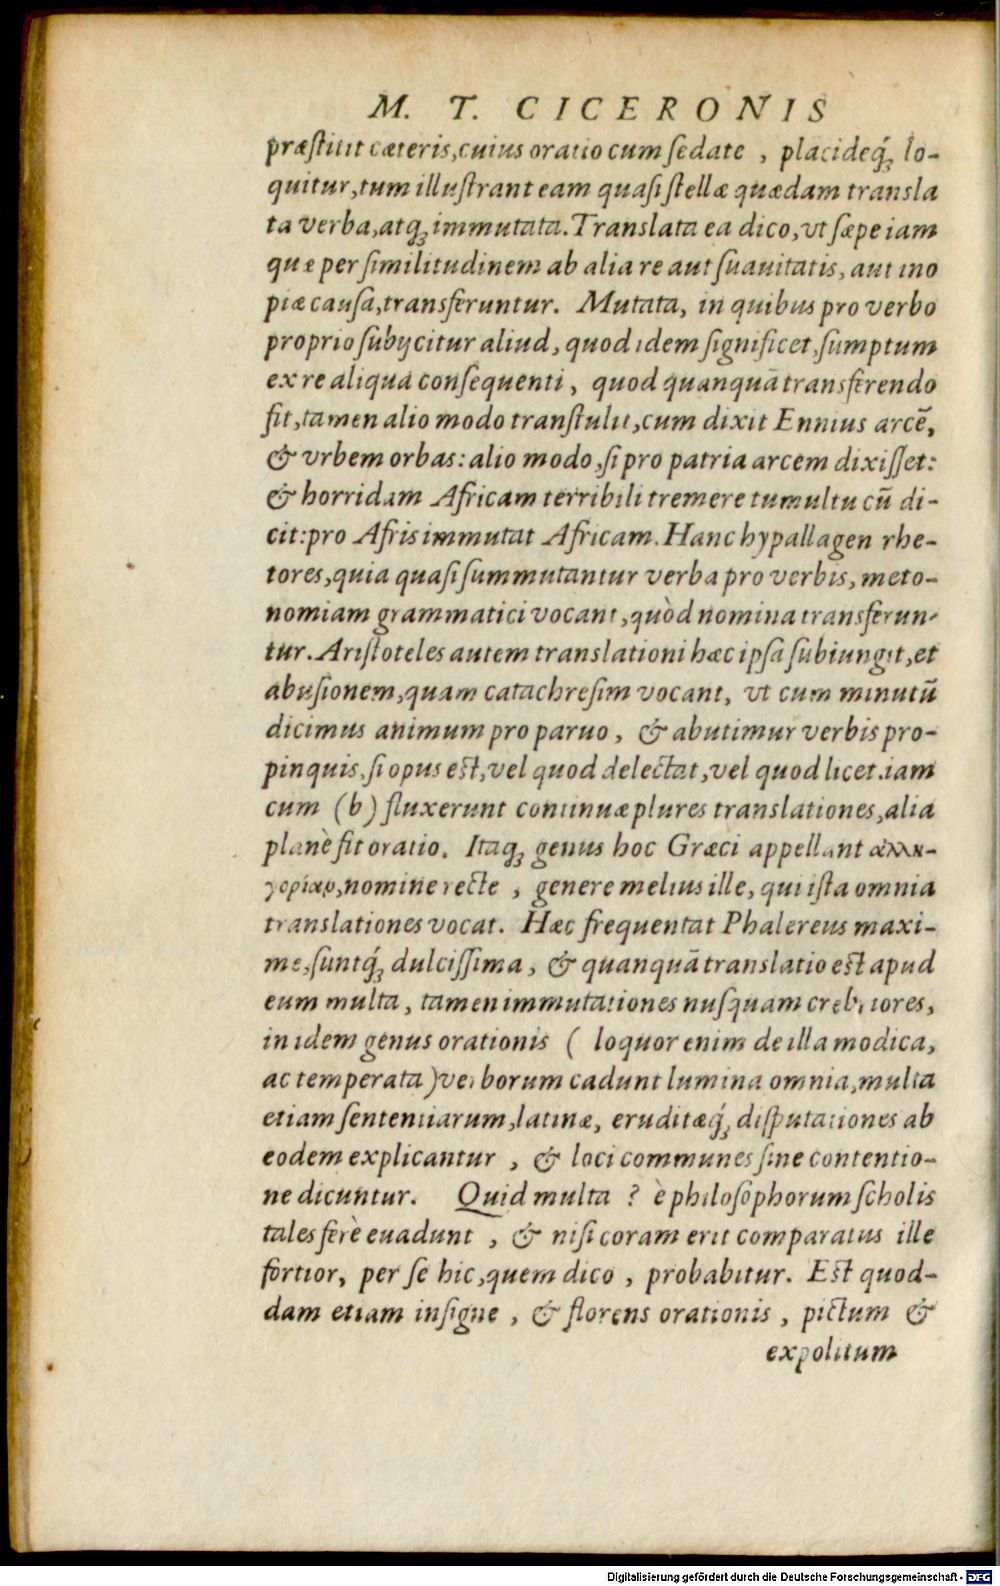 M. T. CICERONIS
præſtitit cæteris, cuius oratio cum ſedate , placideq́ꝫ lo-
quitur, tum illuſtrant eam quaſi ſtellæ quædam transla
ta verba, atqꝫ immutata. Translata ea dico, vt ſæpe iam
quæ per ſimilitudinem ab alia re aut ſuauitatis, aut ino
piæ cauſa, transferuntur. Mutata, in quibus pro verbo
proprio ſubijcitur aliud, quod idem ſignificet, ſumptum
ex re aliqua conſequenti, quod quanquā transferendo
fit, tamen alio modo tranſtulit, cum dixit Ennius arcē,
& vrbem orbas: alio modo, ſi pro patria arcem dixiſſet:
& horridam Africam terribili tremere tumultu cū di-
cit: pro Afris immutat Africam. Hanc hypallagen rhe-
tores, quia quaſi ſummutantur verba pro verbis, meto-
nomiam grammatici vocant, quòd nomina transferun-
tur. Ariſtoteles autem translationi hæc ipſa ſubiungit, et
abuſionem, quam catachreſim vocant, vt cum minutū
dicimus animum pro paruo, & abutimur verbis pro-
pinquis, ſi opus est, vel quod delectat, vel quod licet. iam
cum (b) fluxerunt continuæ plures translationes, alia
planè fit oratio. Itaqꝫ genus hoc Græci appellant ἀλλη-
γορίαν, nomine recte , genere melius ille, qui iſta omnia
translationes vocat. Hæc frequentat Phalereus maxi-
me, ſuntq́ꝫ dulciſſima, & quanquā translatio est apud
eum multa, tamen immutationes nuſquam crebriores,
in idem genus orationis ( loquor enim de illa modica,
ac temperata) verborum cadunt lumina omnia, multa
etiam ſententiarum, latinæ, eruditæq́ꝫ diſputationes ab
eodem explicantur , & loci communes ſine contentio-
ne dicuntur. Quid multa ? è philoſophorum ſcholis
tales ferè euadunt , & niſi coram erit comparatus ille
fortior, per ſe hic, quem dico , probabitur. Est quod-
dam etiam inſigne , & florens orationis , pictum &
expolitum
Digitalisierung gefördert durch die Deutsche Forschungsgemeinschaft - DFG